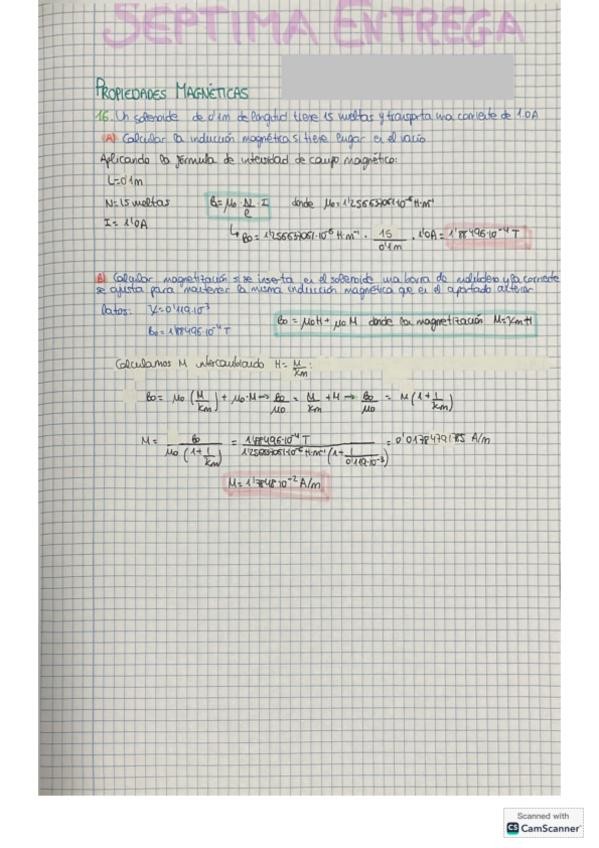 SEPTIMA ENTREGA
PROPIEDADES MAGNÉTICAS
16. Un solenoide de 0'1m de longitud tiene 15 vueltas y transporta una corriente de 1.0A
(A) Calcular la inducción magnética si tiene lugar en el vacío
Aplicando la fórmula de intensidad de campo magnético:
L=0'1m
N=15 vueltas B=μ₀·N/l·I donde μ₀=1'25663706·10⁻⁶ H·m⁻¹
I=1'0A
↳ B₀=1'25663706·10⁻⁶ H·m⁻¹ · 15/0'1m · 1'0A = 1'88496·10⁻⁴ T
(B) Calcular magnetización si se inserta en el solenoide una barra de molibdeno y la corriente
se ajusta para mantener la misma inducción magnética que en el apartado anterior
Datos: χ=0'119·10⁻³
B₀=1'88496·10⁻⁴ T
B₀=μ₀H+μ₀M donde la magnetización M=χm·H
Calculamos M intercambiando H=M/χm:
B₀= μ₀(M/χm)+μ₀·M → B₀/μ₀ = M/χm + M → B₀/μ₀ = M(1+1/χm)
M= B₀/μ₀(1+1/χm) = 1'88496·10⁻⁴ T/1'25663706·10⁻⁶ H·m⁻¹(1+1/0'119·10⁻³) = 0'01784791785 A/m
M=1'7848·10⁻² A/m
Scanned with
CS CamScanner